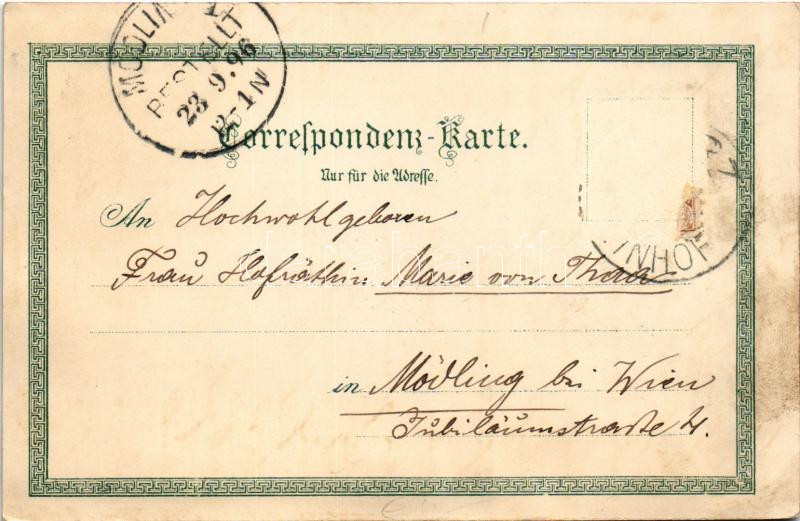 MÖDLIN
BESTELLT
23.9.96
12-1N
Correspondenz-Karte.
Nur für die Adresse.
An Hochwohlgeboren
Frau Hofräthin Marie von Thaa
in Mödling bei Wien
Jubiläumstrasse 4.